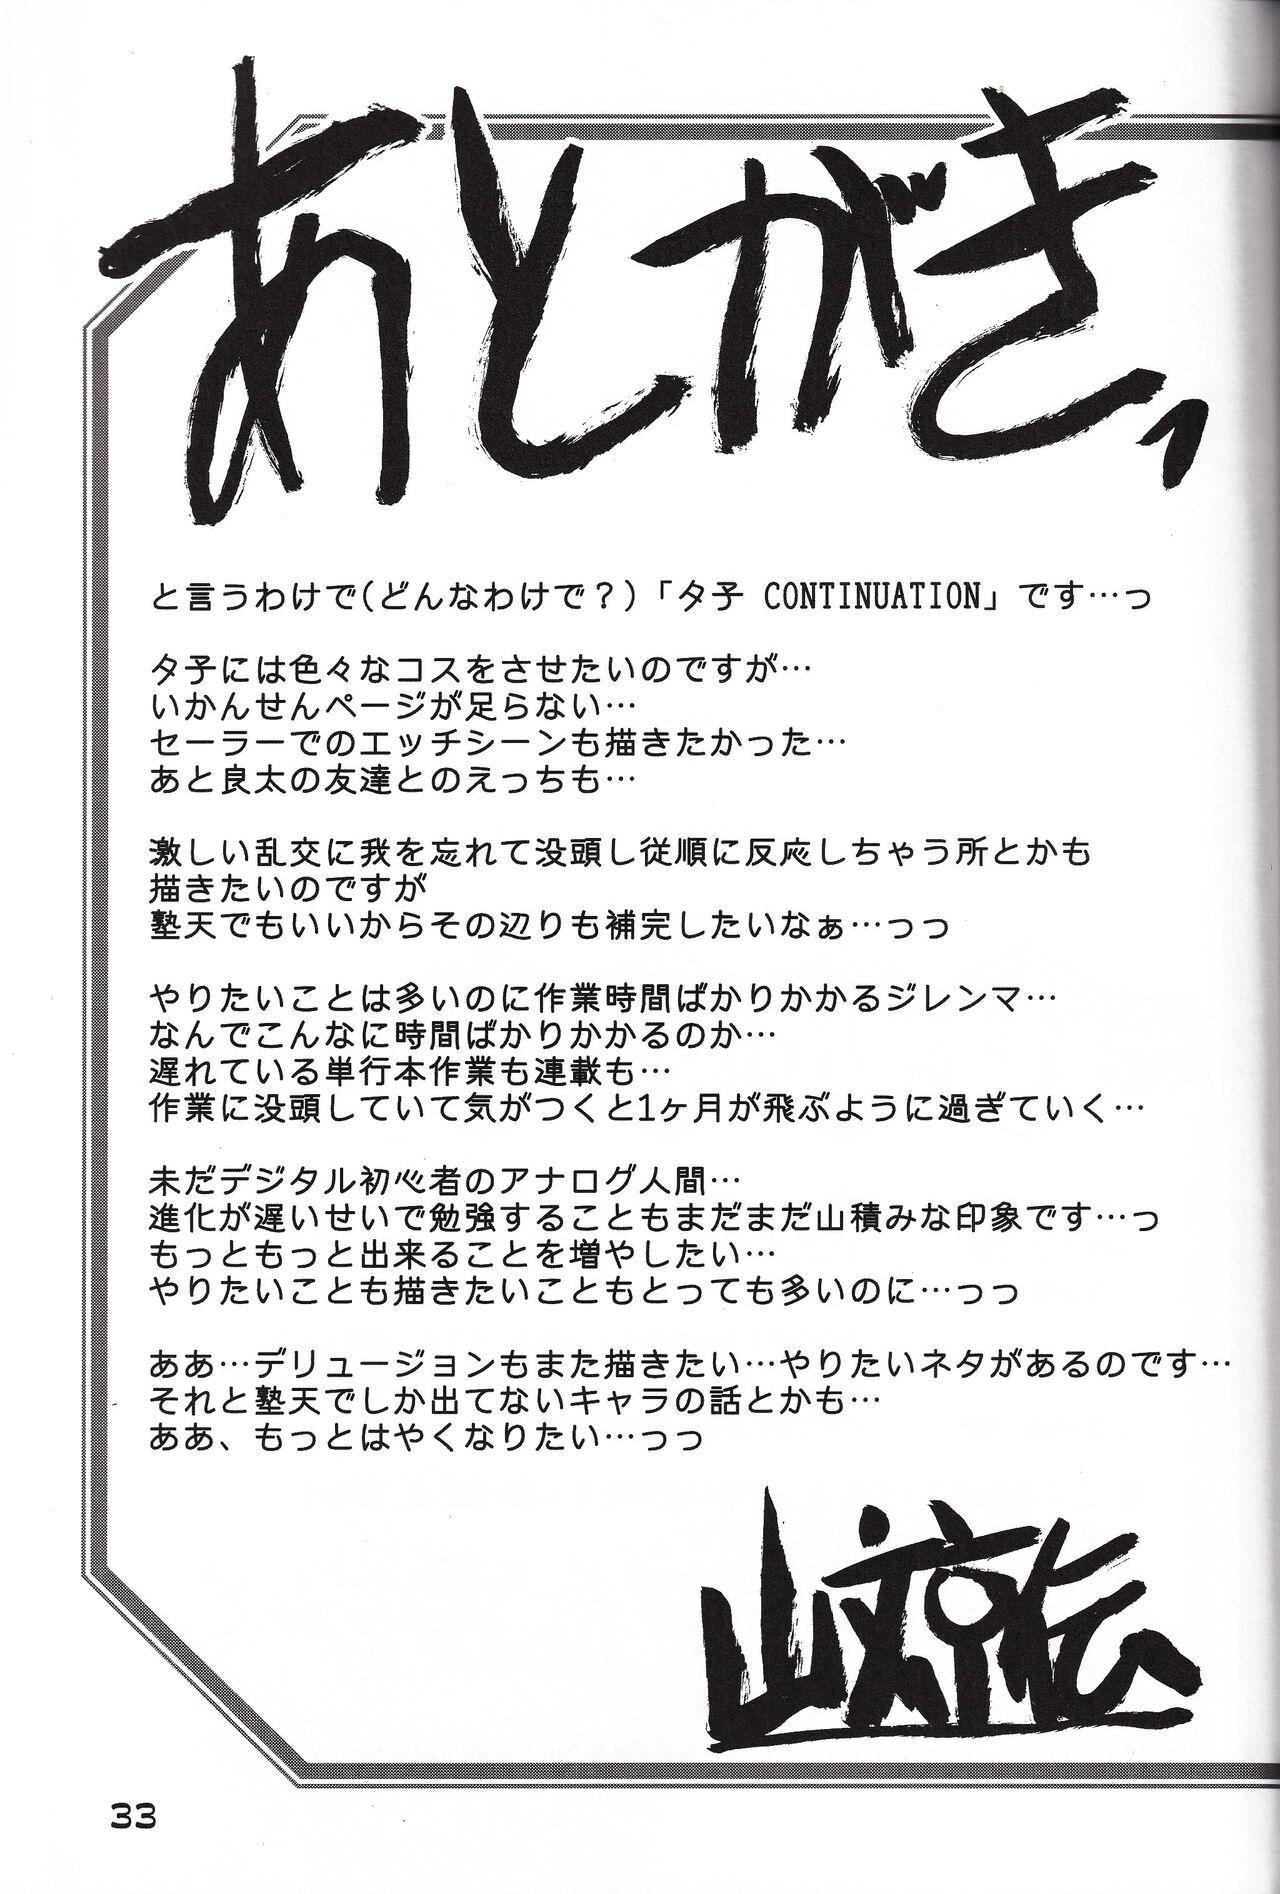 あとがき、
と言うわけで(どんなわけで？)「夕子 CONTINUATION」です…っ
夕子には色々なコスをさせたいのですが…
いかんせんページが足らない…
セーラーでのエッチシーンも描きたかった…
あと良太の友達とのえっちも…
激しい乱交に我を忘れて没頭し従順に反応しちゃう所とかも
描きたいのですが
塾天でもいいからその辺りも補完したいなぁ…っっ
やりたいことは多いのに作業時間ばかりかかるジレンマ…
なんでこんなに時間ばかりかかるのか…
遅れている単行本作業も連載も…
作業に没頭していて気がつくと1ヶ月が飛ぶように過ぎていく…
未だデジタル初心者のアナログ人間…
進化が遅いせいで勉強することもまだまだ山積みな印象です…っ
もっともっと出来ることを増やしたい…
やりたいことも描きたいこともとっても多いのに…っっ
ああ…デリュージョンもまた描きたい…やりたいネタがあるのです…
それと塾天でしか出てないキャラの話とかも…
ああ、もっとはやくなりたい…っっ
33